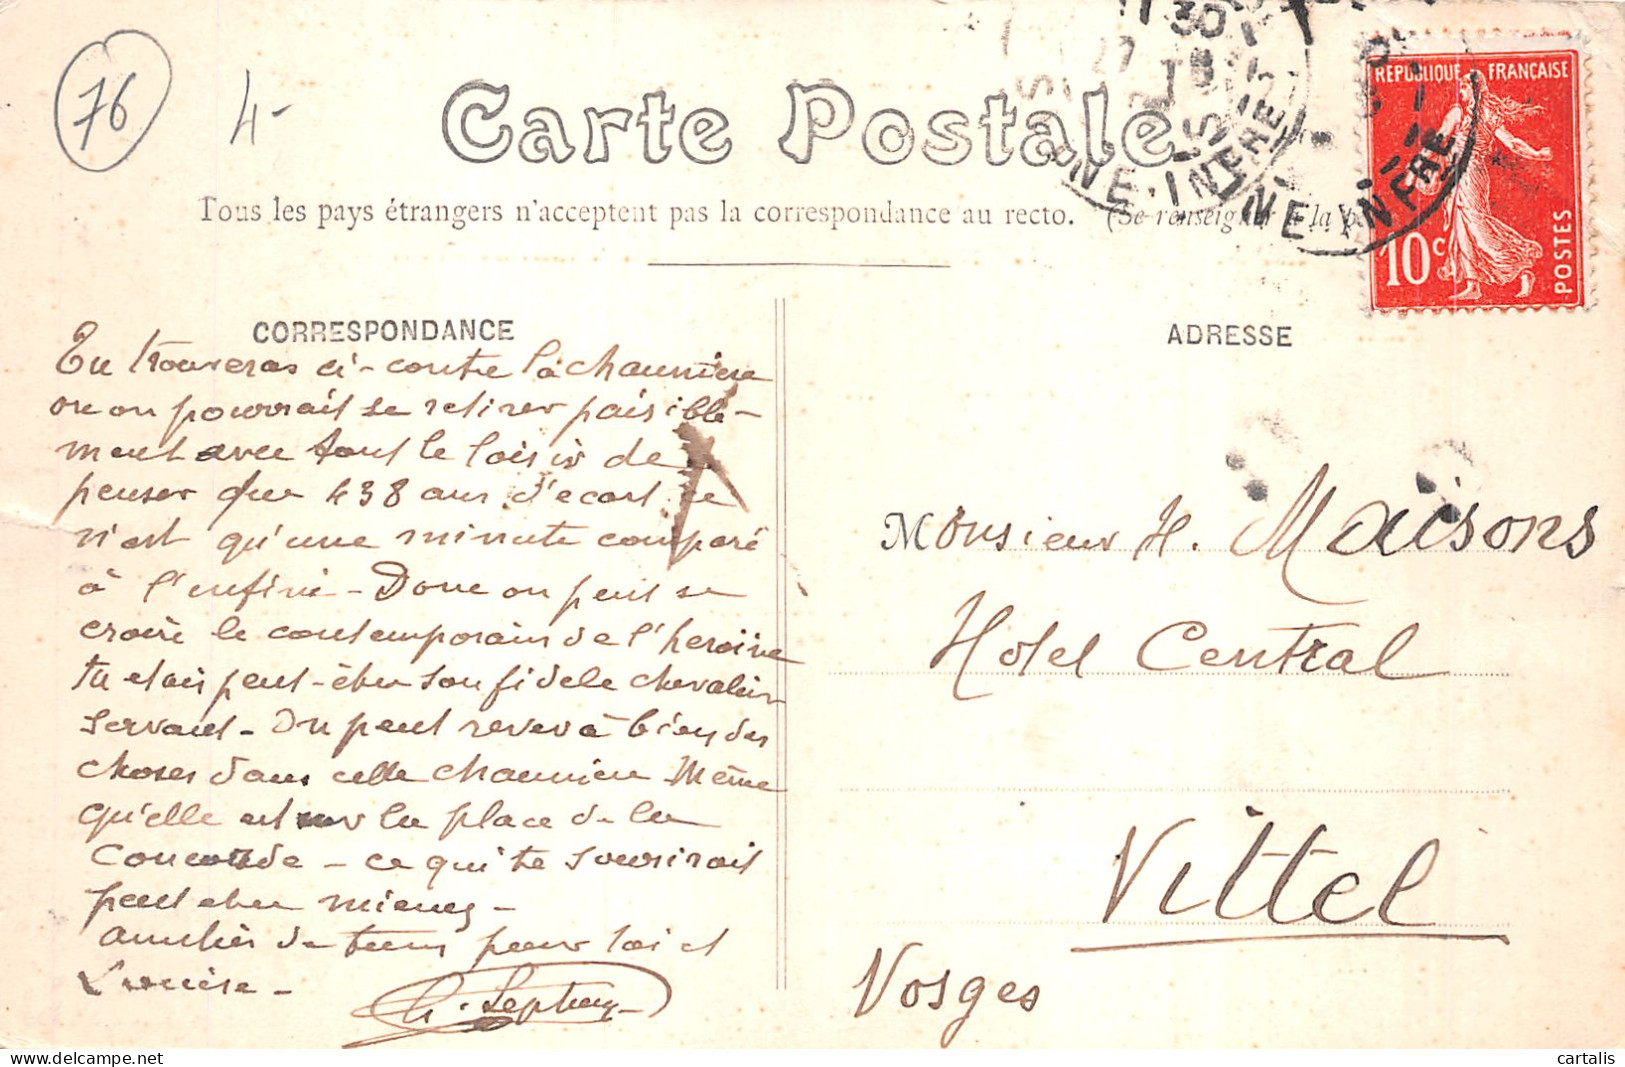 76
4-
Carte Postale
Tous les pays étrangers n'acceptent pas la correspondance au recto. (Se renseigner à la
RÉPUBLIQUE FRANÇAISE
10 c
POSTES
11 30
27
NE-INFRE
NE INFRE
CORRESPONDANCE
ADRESSE
Tu trouveras ci-contre la chaumière
ou on pourrait se retirer paisible-
ment avec tout le loisir de
penser que 438 ans d'ecart ce
n'est qu'une minute comparé
à l'enfini - Donc on peut se
croire le contemporain de l'heroine
tu etais peut-être son fidele chevalier
servant - On peut rever à bien des
choses dans cette chaumière Même
qu'elle est sur la place de la
Concorde - ce qui te sourirait
peut etre mieux -
amitiés de tous pour toi et
Louise -
Monsieur H. Maisons
Hotel Central
Vittel
Vosges
cartalis